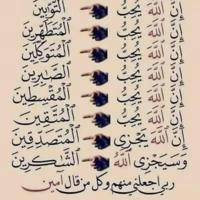 إِنَّ ٱللَّهَ يُحِبُّ ٱلتَّوَّٰبِينَ
إِنَّ ٱللَّهَ يُحِبُّ ٱلْمُتَطَهِّرِينَ
إِنَّ ٱللَّهَ يُحِبُّ ٱلْمُتَوَكِّلِينَ
إِنَّ ٱللَّهَ يُحِبُّ ٱلصَّٰبِرِينَ
إِنَّ ٱللَّهَ يُحِبُّ ٱلْمُقْسِطِينَ
إِنَّ ٱللَّهَ يُحِبُّ ٱلْمُتَّقِينَ
إِنَّ ٱللَّهَ يَجْزِى ٱلْمُتَصَدِّقِينَ
وَسَيَجْزِى ٱللَّهُ ٱلشَّٰكِرِينَ
ربي اجعلني منهم وكل من قال آمين